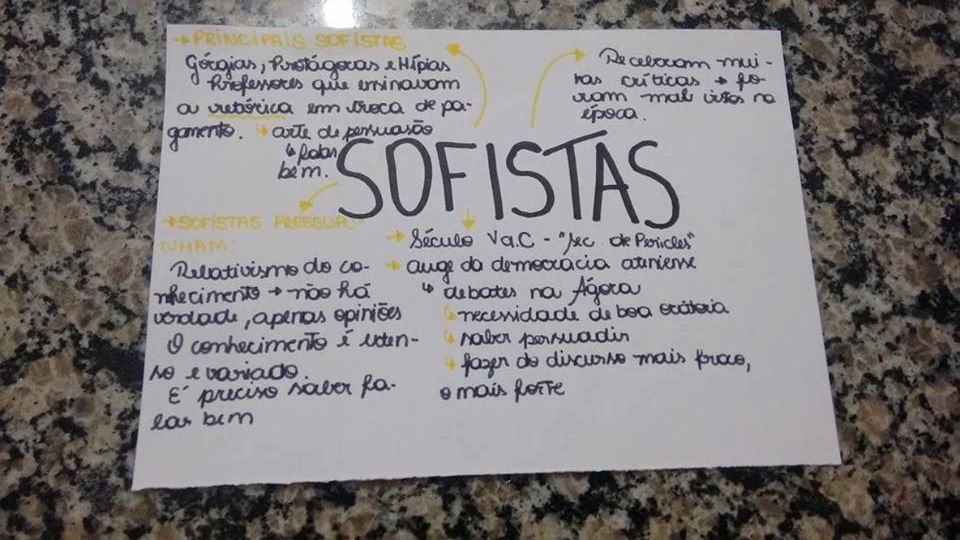 → PRINCIPAIS SOFISTAS
Górgias, Protágoras e Hípias
Professores que ensinavam
a retórica em troca de pa-
gamento. ↳ arte de persuasão
↳ falar
bem.
→ Receberam mui-
tas críticas → fo-
ram mal vistos na
época.
SOFISTAS
→ SOFISTAS PRESSUPU
NHAM:
Relativismo do co-
nhecimento → não há
verdade, apenas opiniões
O conhecimento é exten-
so e variado.
É preciso saber fa-
lar bem
→ Século V a.C - "séc. de Pericles"
→ auge da democracia ateniense
↳ debates na Ágora
↳ necessidade de boa oratória
↳ saber persuadir
↳ fazer do discurso mais fraco,
o mais forte